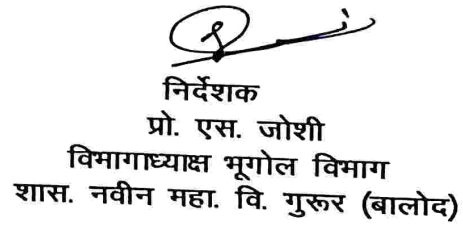 निर्देशक
प्रो. एस. जोशी
विभागाध्याक्ष भूगोल विभाग
शास. नवीन महा. वि. गुरूर (बालोद)